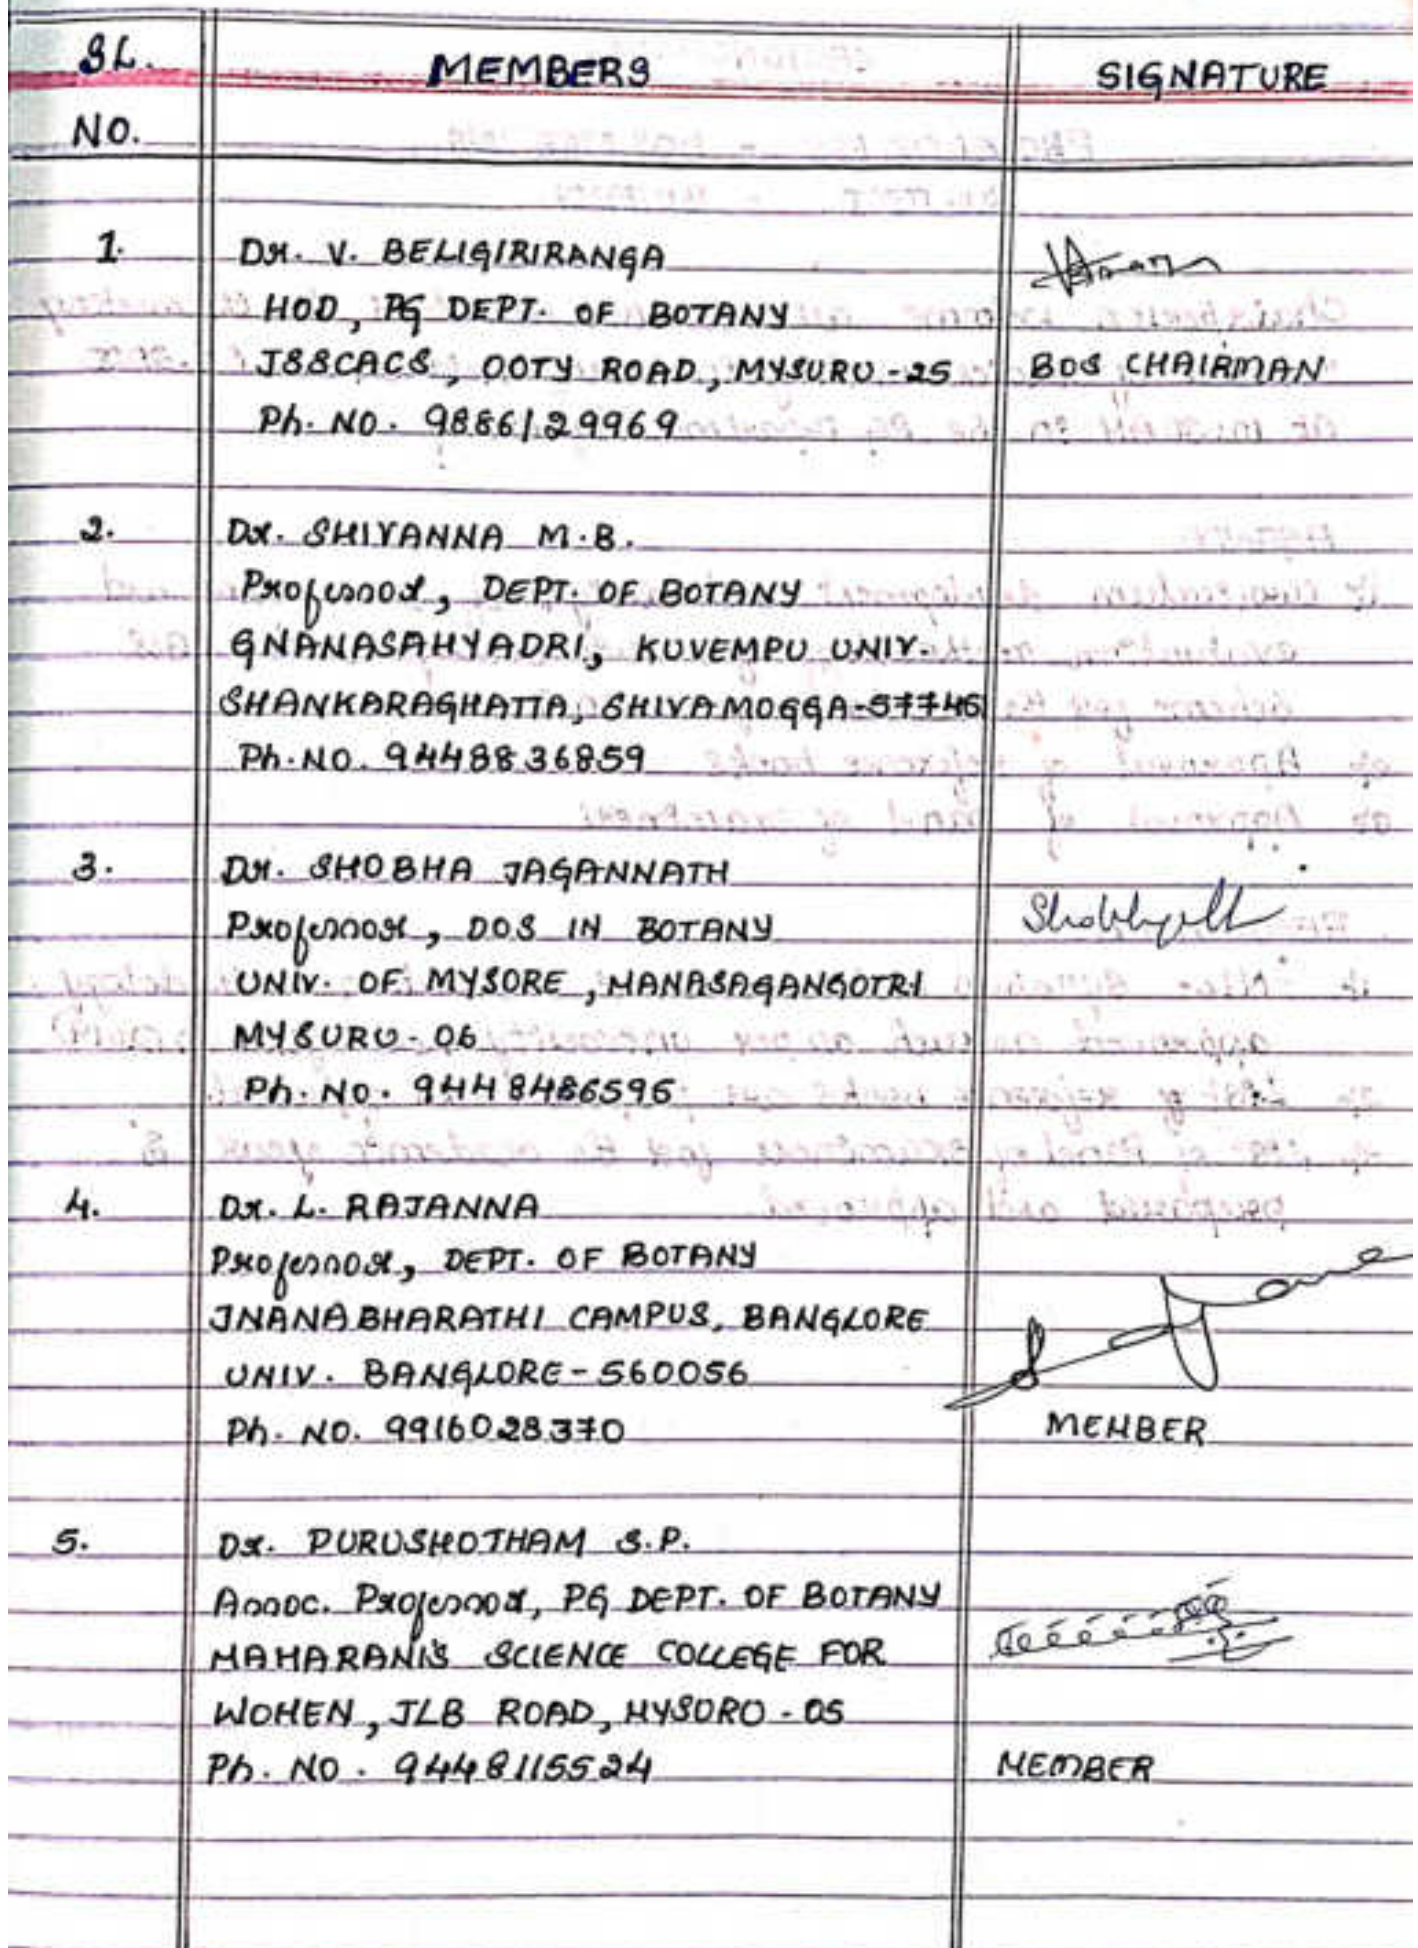 SL. MEMBERS SIGNATURE
NO.
1. Dr. V. BELIGIRIRANGA
HOD, PG DEPT. OF BOTANY
JSSCACS, OOTY ROAD, MYSURU-25 BOS CHAIRMAN
Ph. NO. 9886129969
2. Dr. SHIVANNA M.B.
Professor, DEPT. OF BOTANY
GNANASAHYADRI, KUVEMPU UNIV.
SHANKARAGHATTA, SHIVAMOGGA-57745
Ph. NO. 9448836859
3. Dr. SHOBHA JAGANNATH
Professor, DOS IN BOTANY
UNIV. OF MYSORE, MANASAGANGOTRI
MYSURU-06
Ph. NO. 9448486596
4. Dr. L. RAJANNA
Professor, DEPT. OF BOTANY
JNANABHARATHI CAMPUS, BANGLORE
UNIV. BANGLORE-560056
Ph. NO. 9916028370 MEMBER
5. Dr. PURUSHOTHAM S.P.
Assoc. Professor, PG DEPT. OF BOTANY
MAHARANI'S SCIENCE COLLEGE FOR
WOMEN, JLB ROAD, MYSORO-05
Ph. NO. 9448115524 MEMBER